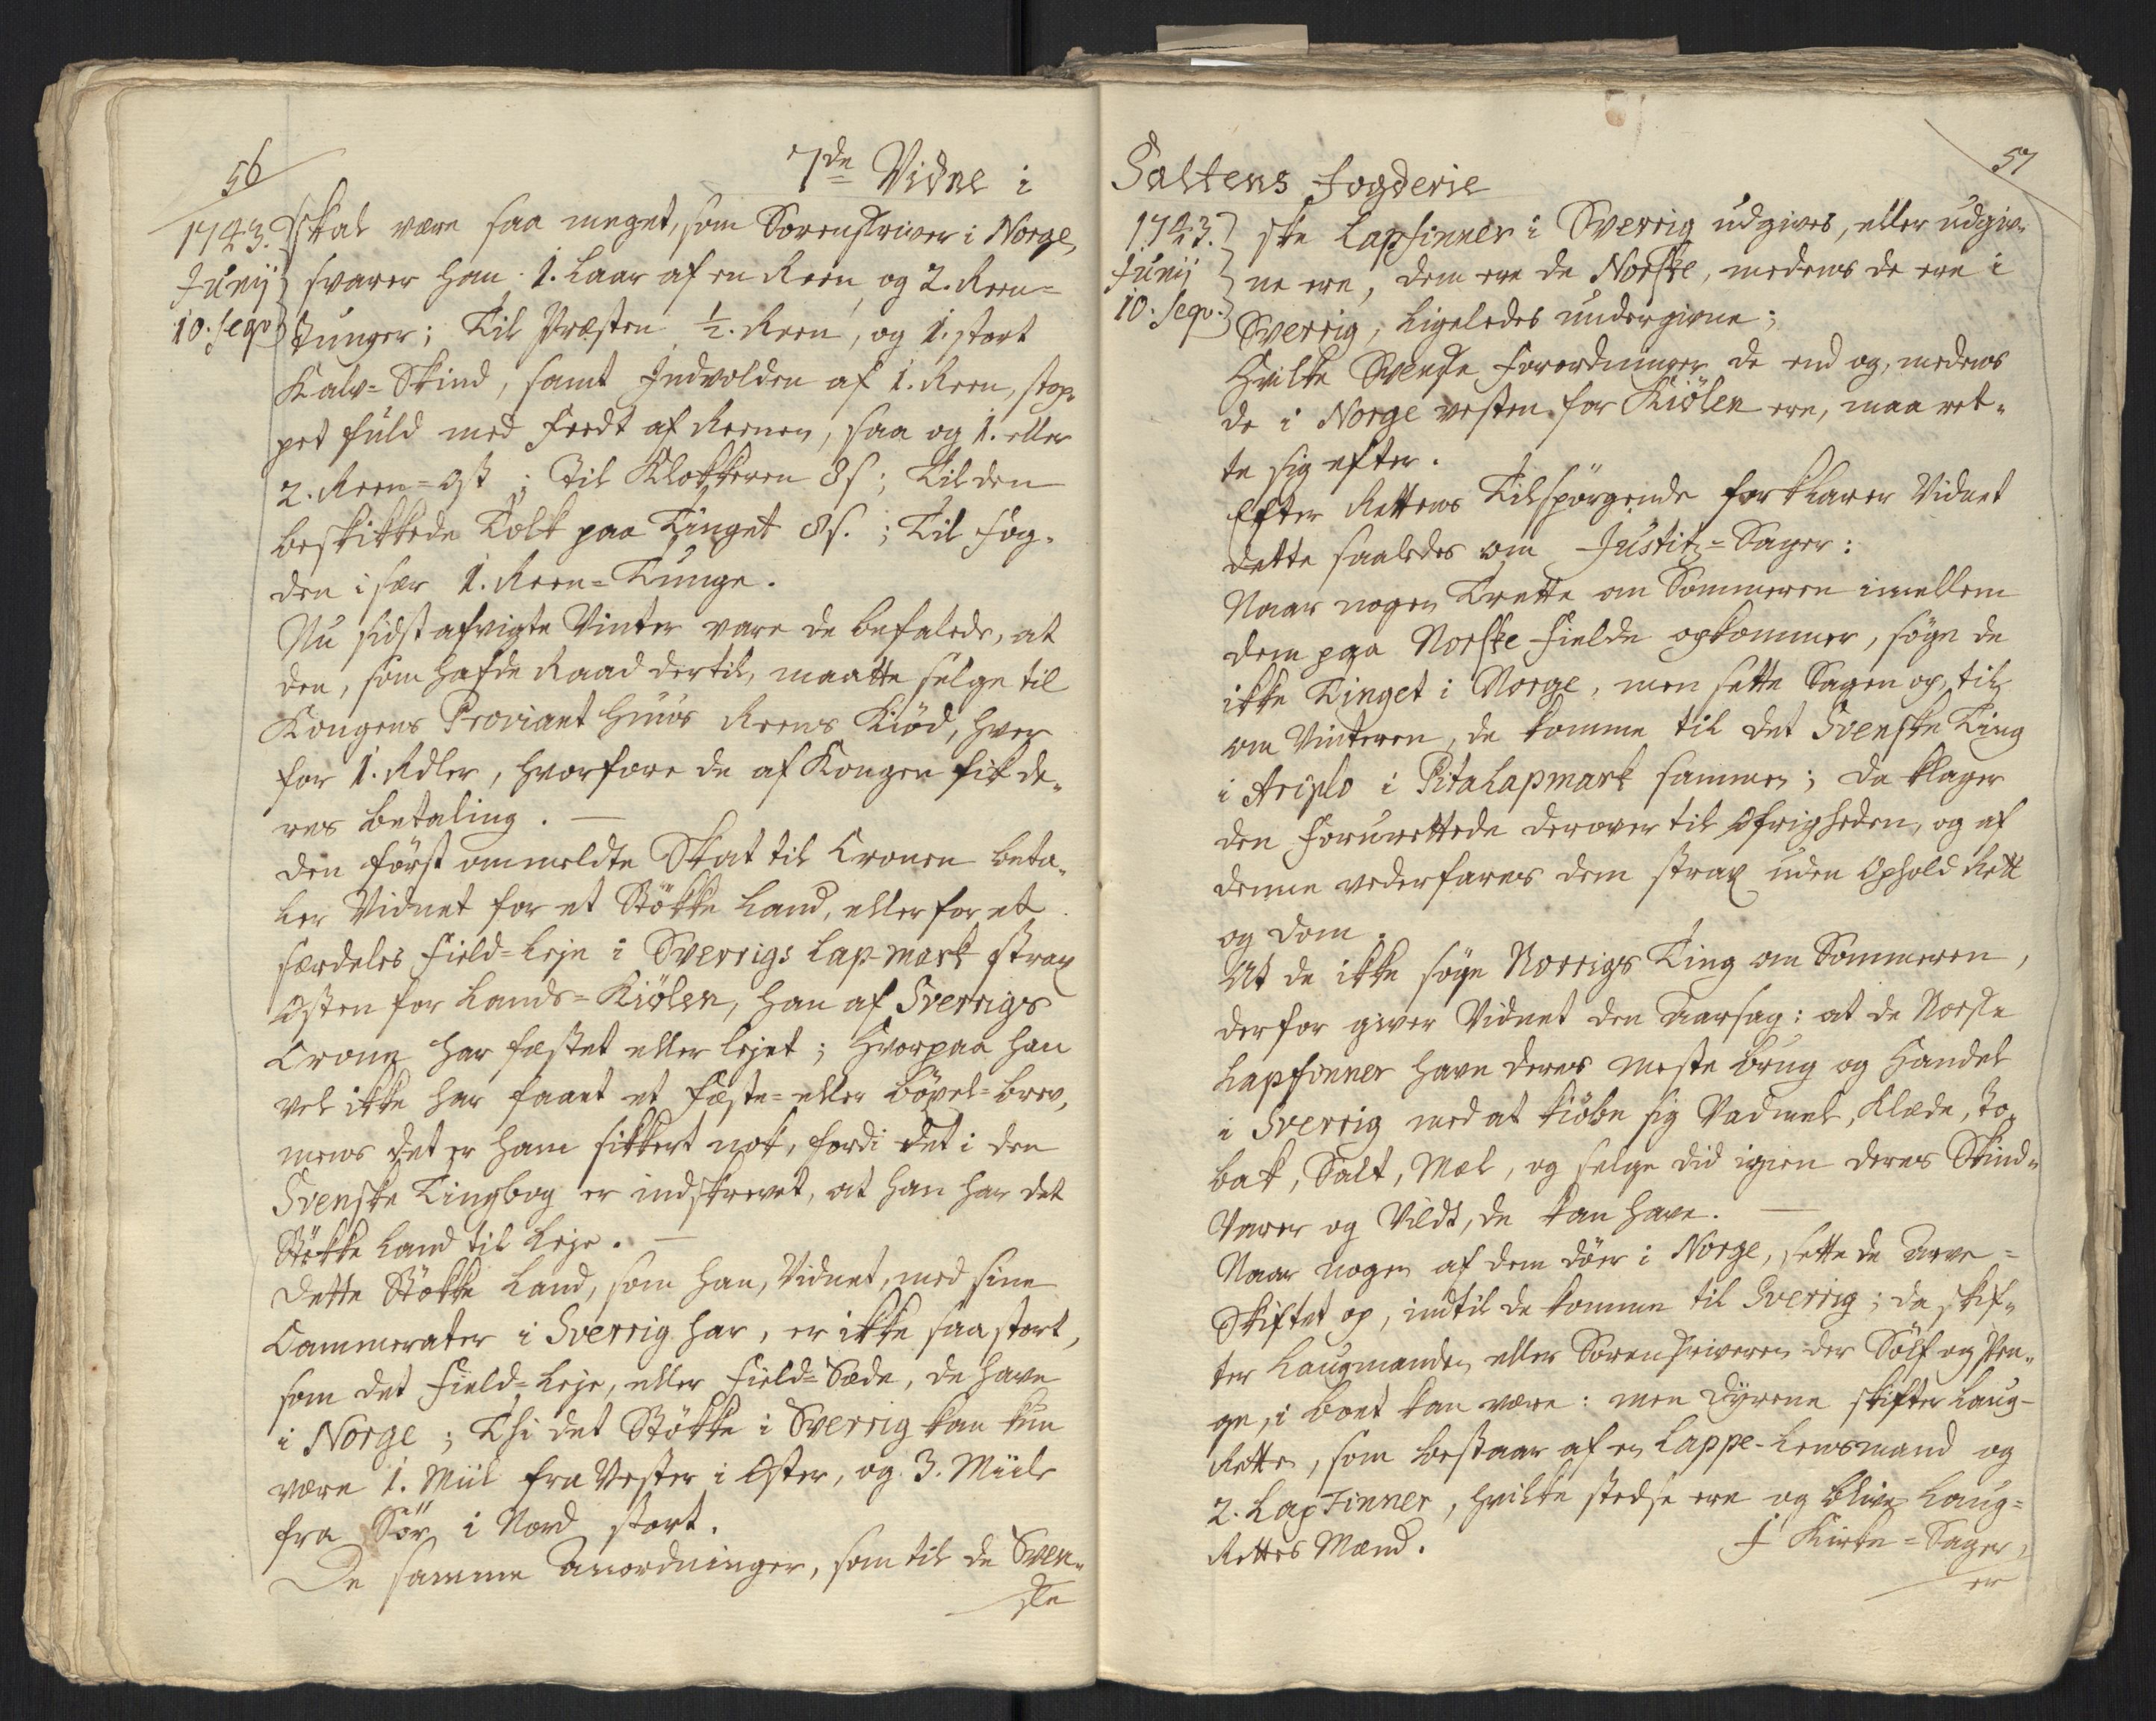 56
7de Vidne i
1743.
Junij
10. seqv.
skal være saa meget, som Sorenskriver i Norge,
svarer han 1. Laar af en Reen og 2. Reen-
Tunger; Til Præsten ½. Reen, og 1. stort
Kalv-Skind, samt Indvolden af 1. Reen, stop-
pet fuld med Feedt af Reenen, saa og 1. eller
2. Reen-Ost; Til Klokkeren 8 s; Til den
beskikkede Tolk paa Tinget 8 s.; Til Fog-
den i sær 1. Reen-Tunge.
Nu sidst afvigte Vinter vare de befalede, at
den, som hafde Raad dertil, maatte selge til
Kongens Proviant Huus Reens Kiød, hver
for 1. Rdler, hvorfore de af Kongen fik de-
res betaling. —
Den først ommeldte Skat til Cronen beta-
ler Vidnet for et Støkke Land, eller for et
særdeles Field-Leje i Sverrigs Lap-mark strax
Østen for Lands-Kiølen, han af Sverrigs
Crone har fæstet eller lejet; Hvorpaa han
vel ikke har faaet et Fæste- eller Böxel-brev,
mens det er ham sikkert nok, fordi det i den
Svenske Tingbog er indskrevet, at han har det
Støkke Land til Leje. —
Dette Støkke Land, som han, Vidnet, med sine
Cammerater i Sverrig har, er ikke saa stort,
som det Field-Leje, eller Field-Sæde, de have
i Norge; Thi det Støkke i Sverrig kan kun
være 1. Miil fra Vester i Øster, og 3. Miile
fra Sør i Nord stort.
De samme Anordninger, som til de Sven-
ske
57
Saltens Fogderie
1743.
Junij
10. seqv.
ske Lapfinner i Sverrig udgives, eller udgiv-
ne ere, dem ere de Norske, medens de ere i
Sverrig, ligeledes undergivne;
Hvilke Svenske Forordninger de end og, medens
de i Norge vesten for Kiölen ere, maa ret-
te sig efter.
Efter Rettens Tilspørgende forklarer Vidnet
dette saaledes om Justitz-Sager:
Naar nogen Trætte om Sommeren imellem
dem paa Norske Fielde opkommer, søge de
ikke Tinget i Norge, men sette Sagen op, til
om Vinteren, de komme til det Svenske Ting
i Ariplo i PitaLapmark sammen; da klager
den Forurettede derover til Øfrigheden, og af
denne vederfares dem strax uden Ophold Rett
og Dom.
At de ikke søge Norrigs Ting om Sommeren,
derfor giver Vidnet den Aarsag: at de Norske
Lapfinner have deres meste brug og Handel
i Sverrig med at kiöbe sig Vadmel, Klæde, To-
bak, Salt, Mæl, og selge did igien deres Skind-
Varer og Vildt, de kan have. —
Naar nogen af dem døer i Norge, sette de Arve-
Skiftet op, indtil de komme til Sverrig; da skif-
ter Laugmanden eller Sorenskriveren der Sølf og Pen-
ge, i boet kan være: men Dyrene skifter Laug-
Retten, som bestaar af en Lappe-Lensmand og
2. LapFinner, hvilke stedse ere og blive Laug-
Rettes Mænd.
I Kirke-Sager,
er